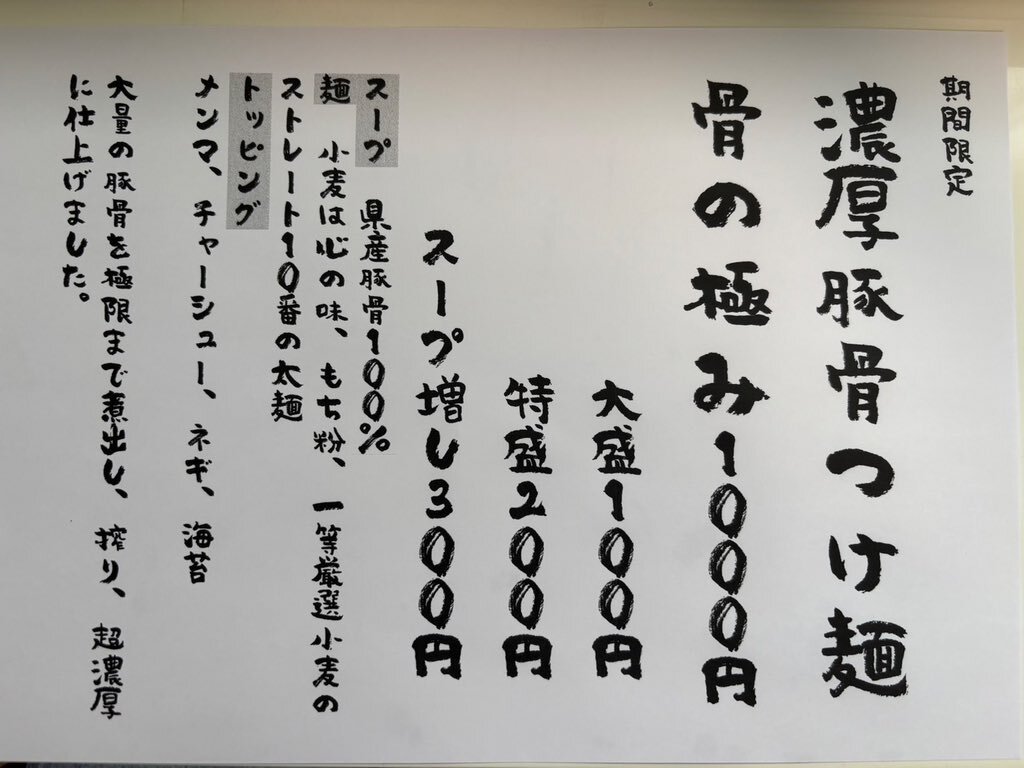 期間限定
濃厚豚骨つけ麺
骨の極み1000円
大盛100円
特盛200円
スープ増し300円
スープ 県産豚骨100%
麺 小麦は心の味、もち粉、一等厳選小麦の
ストレート10番の太麺
トッピング
メンマ、チャーシュー、ネギ、海苔
大量の豚骨を極限まで煮出し、搾り、超濃厚
に仕上げました。